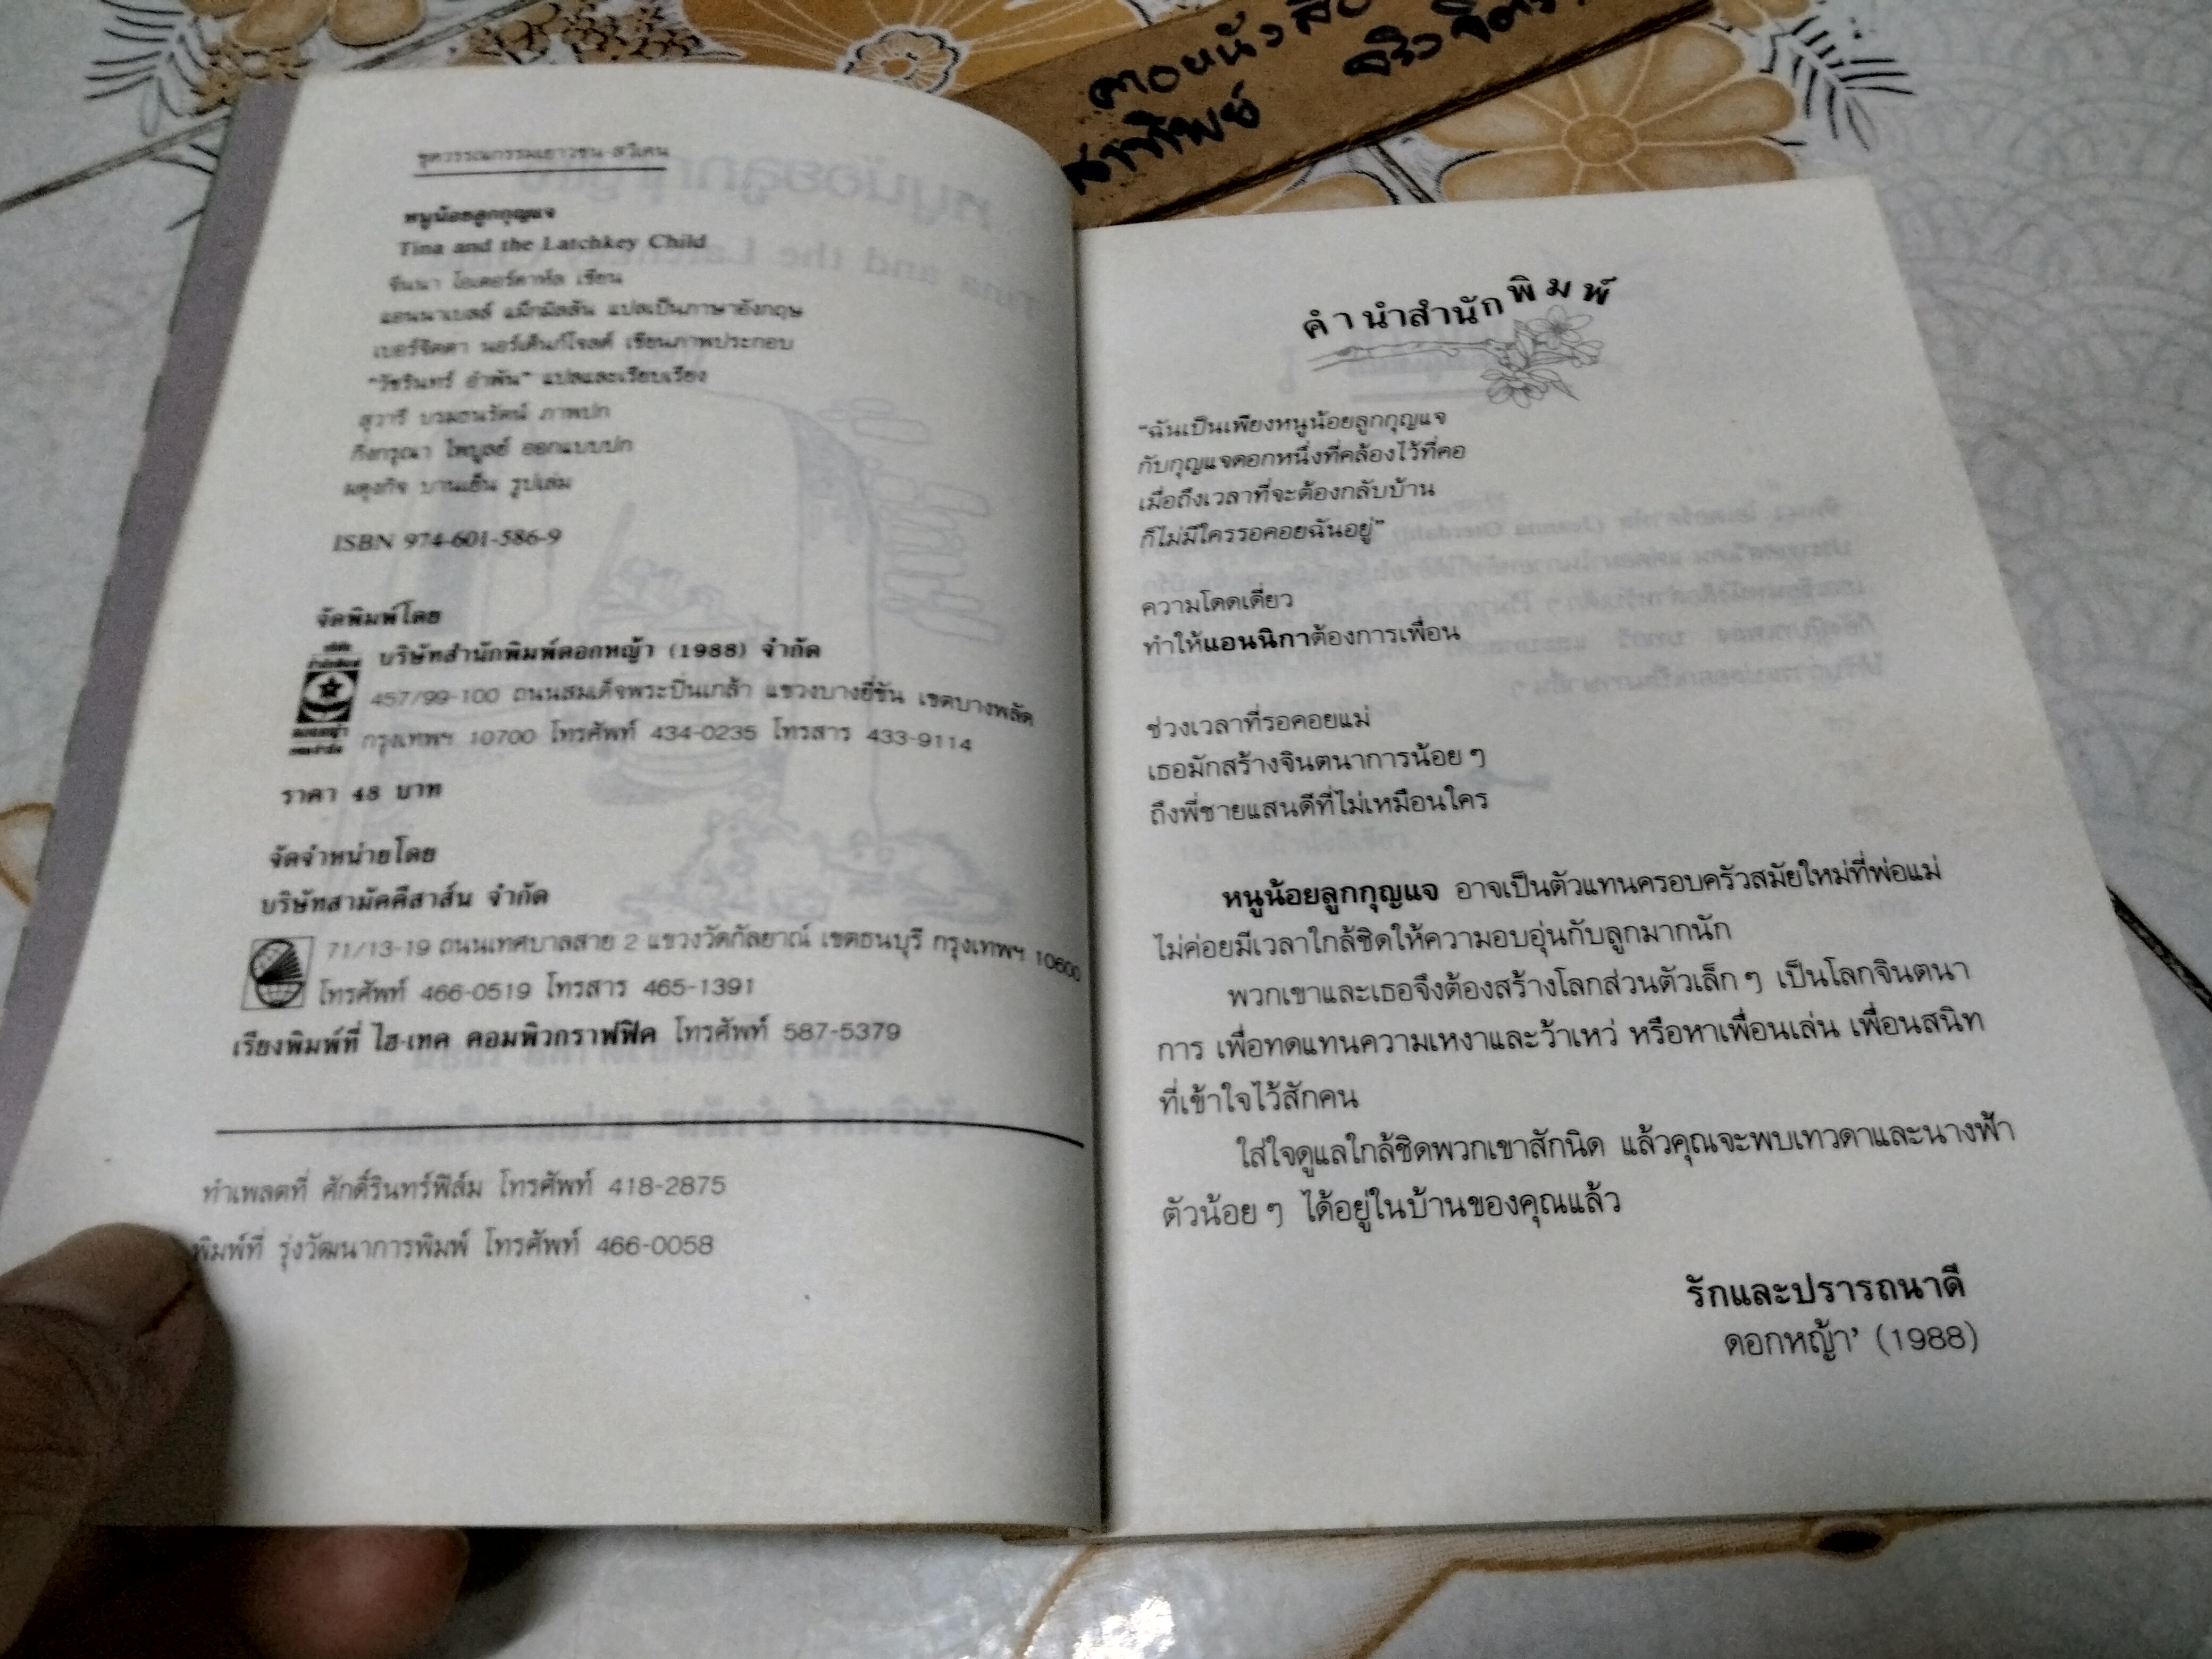 ชุดวรรณกรรมเยาวชน-สวีเดน
หนูน้อยลูกกุญแจ
Tina and the Latchkey Child
จีนนา โอเตอร์ดาห์ล เขียน
แอนนาเบลล์ แม็กมิลลัน แปลเป็นภาษาอังกฤษ
เบอร์จิตตา นอร์เด็นก์โจลด์ เขียนภาพประกอบ
"วัชรินทร์ อำพัน" แปลและเรียบเรียง
สุวารี บวมธนรัตน์ ภาพปก
กิ่งกรุณา ไพบูลย์ ออกแบบปก
ผดุงกิจ บานเย็น รูปเล่ม
ISBN 974-601-586-9
จัดพิมพ์โดย
บริษัทสำนักพิมพ์ดอกหญ้า (1988) จำกัด
457/99-100 ถนนสมเด็จพระปิ่นเกล้า แขวงบางยี่ขัน เขตบางพลัด
กรุงเทพฯ 10700 โทรศัพท์ 434-0235 โทรสาร 433-9114
ราคา 48 บาท
จัดจำหน่ายโดย
บริษัทสามัคคีสาส์น จำกัด
71/13-19 ถนนเทศบาลสาย 2 แขวงวัดกัลยาณ์ เขตธนบุรี กรุงเทพฯ 10600
โทรศัพท์ 466-0519 โทรสาร 465-1391
เรียงพิมพ์ที่ ไฮ-เทค คอมพิวกราฟฟิค โทรศัพท์ 587-5379
ทำเพลตที่ ศักดิ์รินทร์ฟิล์ม โทรศัพท์ 418-2875
พิมพ์ที่ รุ่งวัฒนาการพิมพ์ โทรศัพท์ 466-0058
คำนำสำนักพิมพ์
"ฉันเป็นเพียงหนูน้อยลูกกุญแจ
กับกุญแจดอกหนึ่งที่คล้องไว้ที่คอ
เมื่อถึงเวลาที่จะต้องกลับบ้าน
ก็ไม่มีใครรอคอยฉันอยู่"
ความโดดเดี่ยว
ทำให้แอนนิกาต้องการเพื่อน
ช่วงเวลาที่รอคอยแม่
เธอมักสร้างจินตนาการน้อย ๆ
ถึงพี่ชายแสนดีที่ไม่เหมือนใคร
หนูน้อยลูกกุญแจ อาจเป็นตัวแทนครอบครัวสมัยใหม่ที่พ่อแม่
ไม่ค่อยมีเวลาใกล้ชิดให้ความอบอุ่นกับลูกมากนัก
พวกเขาและเธอจึงต้องสร้างโลกส่วนตัวเล็ก ๆ เป็นโลกจินตนา
การ เพื่อทดแทนความเหงาและว้าเหว่ หรือหาเพื่อนเล่น เพื่อนสนิท
ที่เข้าใจไว้สักคน
ใส่ใจดูแลใกล้ชิดพวกเขาสักนิด แล้วคุณจะพบเทวดาและนางฟ้า
ตัวน้อย ๆ ได้อยู่ในบ้านของคุณแล้ว
รักและปรารถนาดี
ดอกหญ้า' (1988)